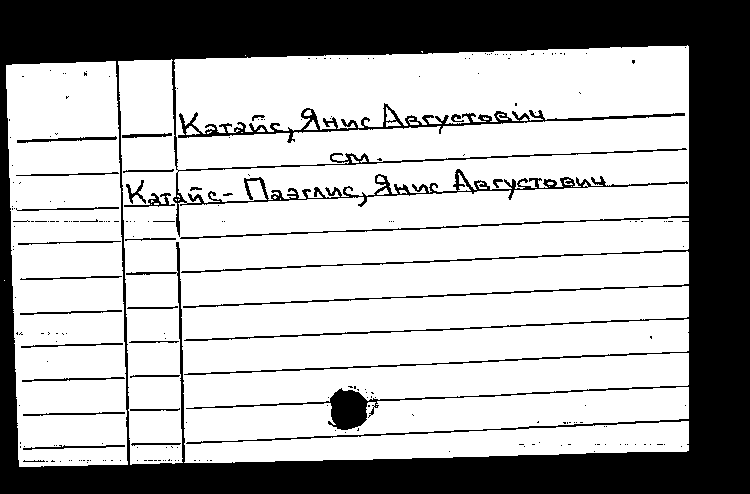 Катайс, Янис Августович
см.
Катайс-Паэглис, Янис Августович